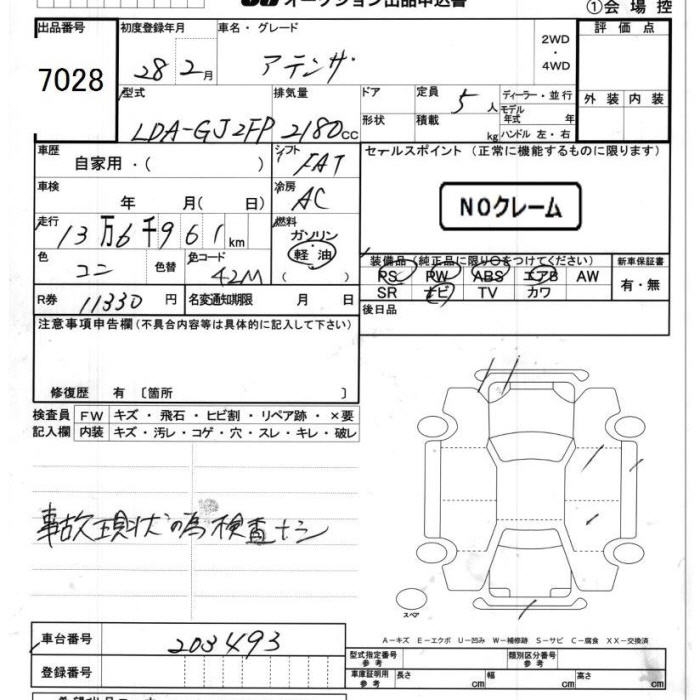 オークション出品申込書
①会場控
出品番号 初度登録年月 車名・グレード 2WD ・ 4WD 評価点
7028 28 2月 アテンザ
外装 内装
型式 排気量 ドア 定員 5人 ディーラー・並行
モデル年式 年
LDA-GJ2FP 2180cc 形状 積載 kg ハンドル 左・右
車歴 自家用・( ) シフト FAT セールスポイント (正常に機能するものに限ります)
車検 年 月( 日) 冷房 AC NOクレーム
走行 13万6千961km 燃料 ガソリン 軽油 ( )
色 コン 色替 色コード 42M
装備品(純正品に限り○をつけてください) 新車保証書
PS PW ABS エアB AW 有・無
SR ナビ TV カワ
R券 11330円 名変通知期限 月 日 後日品
注意事項申告欄(不具合内容等は具体的に記入して下さい)
修復歴 有 〔箇所 〕
検査員記入欄 FW キズ・飛石・ヒビ割・リペア跡・×要
内装 キズ・汚レ・コゲ・穴・スレ・キレ・破レ
事故現状の為検査ナシ
スペア
A−キズ E−エクボ U−凹み W−補修跡 S−サビ C−腐食 XX−交換済
車台番号 203493
型式指定番号 参考 類別区分番号 参考
登録番号
車庫証明用 参考 長さ cm 幅 cm 高さ cm